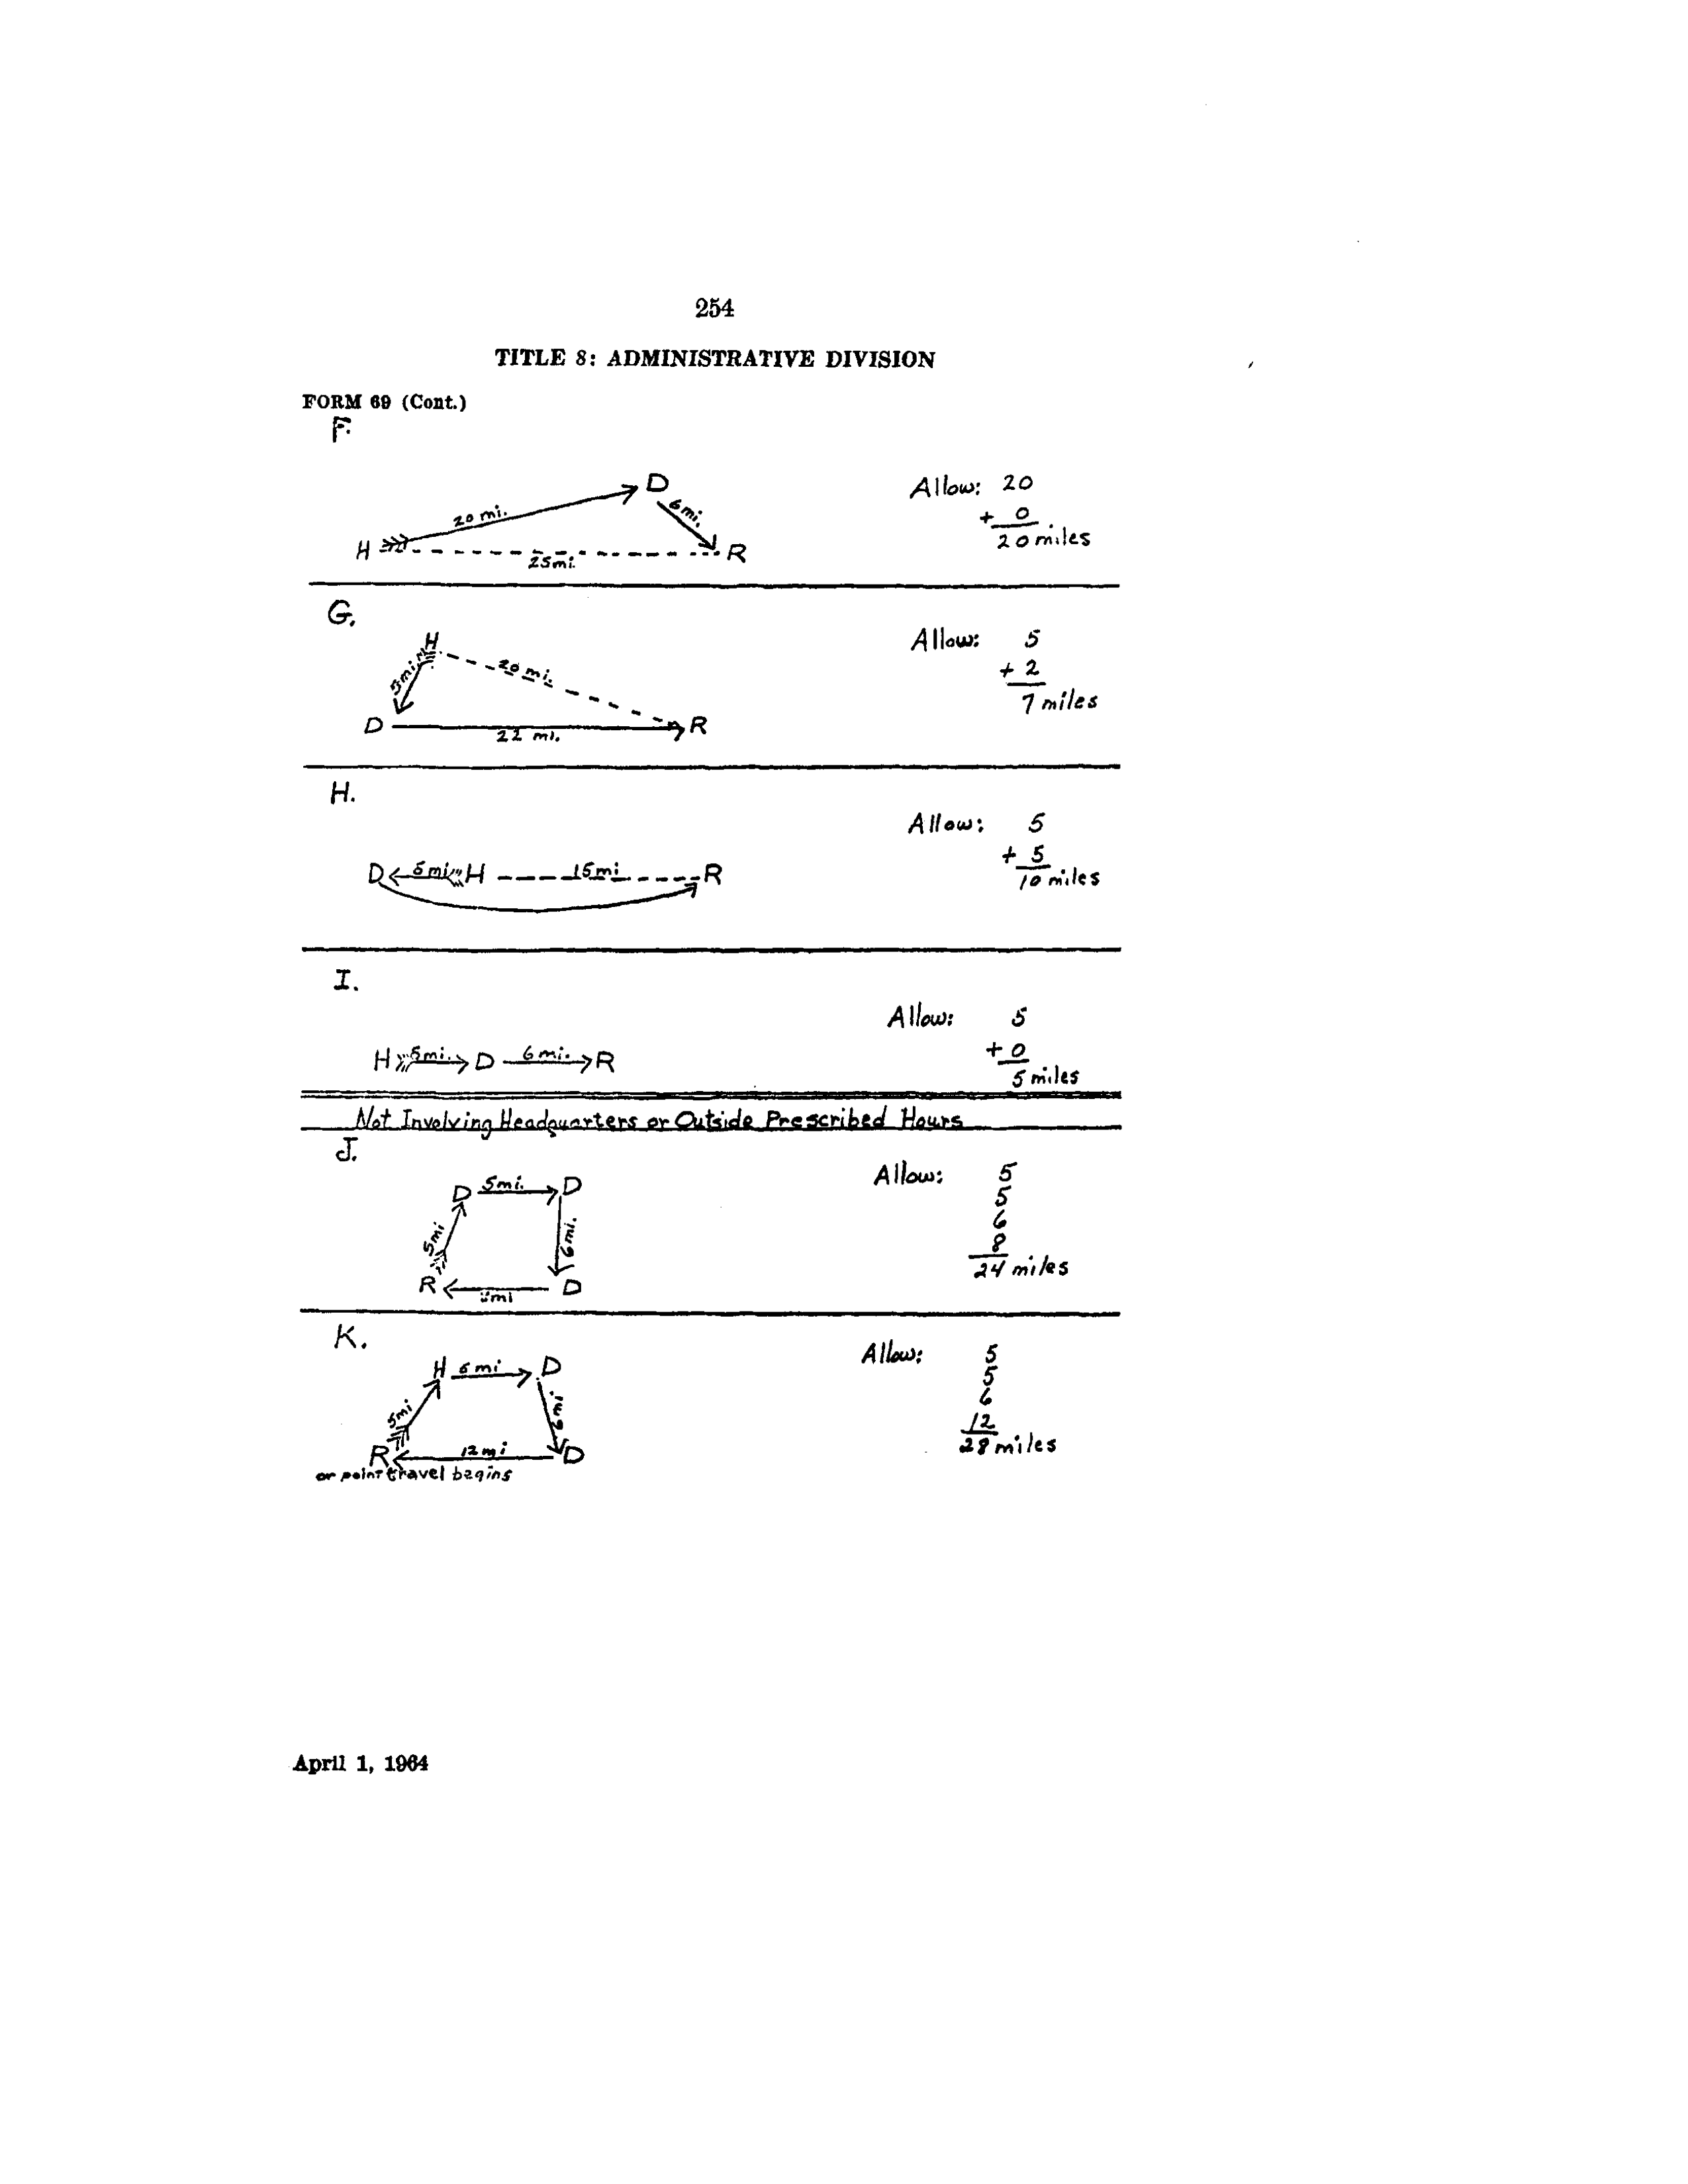 254
TITLE 8: ADMINISTRATIVE DIVISION
FORM 69 (Cont.)
F.
D
20 mi.
6 mi.
H
25 mi.
R
Allow: 20
+ 0
20 miles
G.
H
5 mi.
20 mi.
D
22 mi.
R
Allow: 5
+ 2
7 miles
H.
D 5 mi. H 15 mi. R
Allow: 5
+ 5
10 miles
I.
H 5 mi. D 6 mi. R
Allow: 5
+ 0
5 miles
Not Involving Headquarters or Outside Prescribed Hours
J.
D 5 mi. D
5 mi
6 mi.
R mi D
Allow: 5
5
6
8
24 miles
K.
H mi D
5 mi
6 mi
R 12 mi D
or point travel begins
Allow: 5
5
6
12
28 miles
April 1, 1964